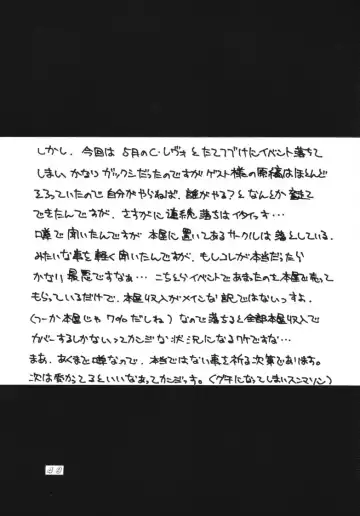 しかし、今回は5月のC・レヴォとたてつづけにイベント落ちて
しまい、かなりガックシだったのですがゲスト様の原稿はほとんど
そろっていたので自分がやらねば、誰がやる?となんとか奮起
できたんですが、さすがに連続落ちはイタイッキ…
噂で聞いたんですが本屋に置いてあるサークルは落としている。
みたいな事を軽く聞いたんですが、もしコレが本当だったら
かなり最悪ですなぁ…こちとらイベントであまったのを本屋で売って
もらっているだけで、本屋収入がメインな訳ではないっすよ。
(つーか本屋じゃ7%だしね)なので落ちると全部本屋収入で
カバーするしかないってカンジな状況になるワケですな…
まあ、あくまで噂なので、本当ではない事を祈る次第であります。
次は受かってるといいなあってカンジッキ。(グチになってしまいスンマソン)